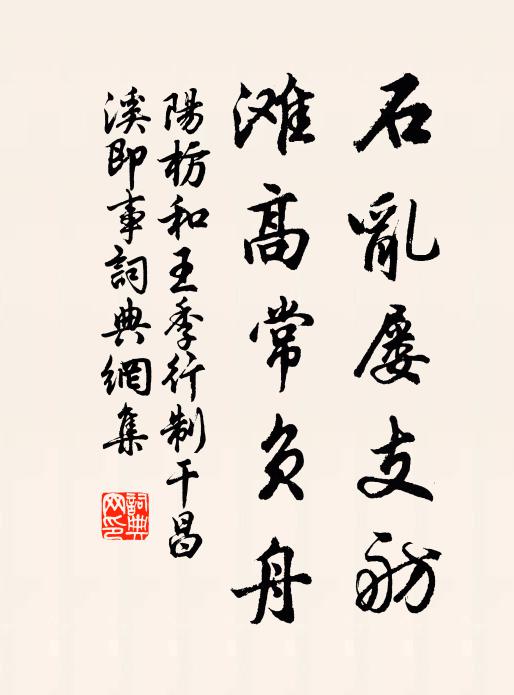 石亂屢支舫
滩高常负舟
陽枋和王季行制干昌
溪即事詞典網集
詞典网印